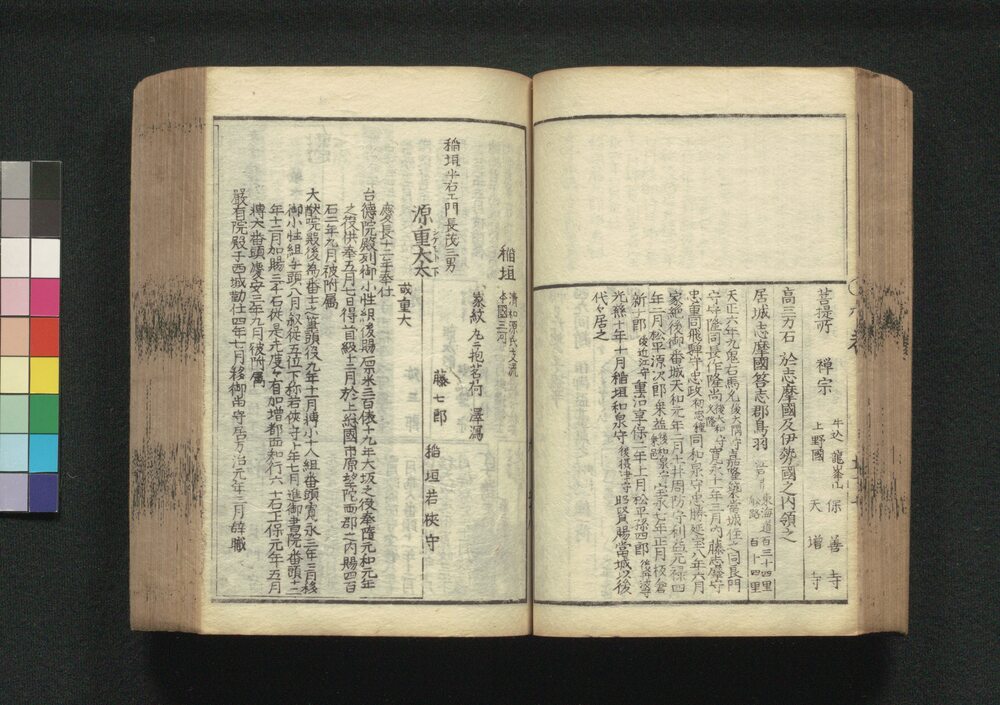 菩提所 禅宗 牛込 龍峯山 保善寺
上野國 天増寺
高三万石 於志摩國及伊勢國之内領之
居城志摩國答志郡鳥羽 江戸ヨリ 東海道百三十四里
船路 百十四里
天正六年九鬼右馬允後大隅守嘉隆築當城住之同長門
守守隆同長作隆尚久隆後大和守寛永十年三月内藤志摩守
忠重同飛騨守忠政初忠種同和泉守忠勝延宝八年六月
家絶後御番城天和元年二月土井周防守利益元禄四
年二月松平源次郎乗邑後和泉守宝永七年正月板倉
新十郎後近江守重治享保二年十一月松平孫四郎
光慈十年十月稲垣和泉守後摂津守昭賢賜當城以後
代々居之
稲垣 清和源氏支流
本國三河
家紋 丸ニ抱茗荷 澤瀉
稲垣半右エ門長茂三男
源重太 シゲモト 下 藤七郎 稲垣若狭守
或重大
慶長十二年奉仕
台徳院殿列御小性組後賜廩米三百俵十九年大坂之役奉隨元和元年
之役供奉五月七日得首級十二月於上総國市原望陀西郡之内賜四百
石二年九月被附属
大猷院殿後為番士之筆頭役九年十二月轉小十人組番頭寛永三年三月移
御小性組与頭八月叙従五位下称若狭守十年七月進御書院番頭十二
年十二月加賜三千石従是先度々有加増都而知行六千石正保元年五月
轉大番頭慶安三年九月被附属
嚴有院殿于西城勤仕四年七月移御留守居万治元年三月辞職